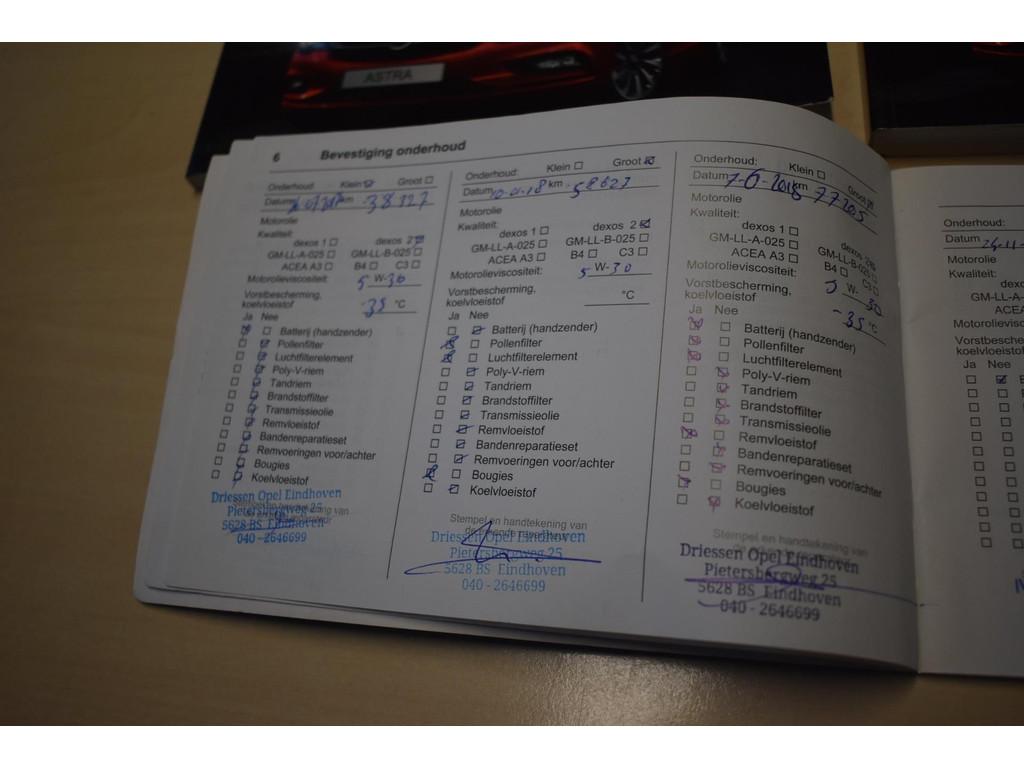 ASTRA
6 Bevestiging onderhoud
Onderhoud: Klein Groot
Datum 38327
Motorolie
Kwaliteit:
dexos 1 dexos 2
GM-LL-A-025 GM-LL-B-025
ACEA A3 B4 C3
Motorolieviscositeit: 5 W-30
Vorstbescherming,
koelvloeistof -35 °C
Ja Nee
Batterij (handzender)
Pollenfilter
Luchtfilterelement
Poly-V-riem
Tandriem
Brandstoffilter
Transmissieolie
Remvloeistof
Bandenreparatieset
Remvoeringen voor/achter
Bougies
Koelvloeistof
Driessen Opel Eindhoven
Pietersbergweg 25
5628 BS Eindhoven
040-2646699
Onderhoud: Klein Groot
Datum 10-01-18 km 58627
Motorolie
Kwaliteit:
dexos 1 dexos 2
GM-LL-A-025 GM-LL-B-025
ACEA A3 B4 C3
Motorolieviscositeit: 5 W-30
Vorstbescherming,
koelvloeistof °C
Ja Nee
Batterij (handzender)
Pollenfilter
Luchtfilterelement
Poly-V-riem
Tandriem
Brandstoffilter
Transmissieolie
Remvloeistof
Bandenreparatieset
Remvoeringen voor/achter
Bougies
Koelvloeistof
Stempel en handtekening van
Driessen Opel Eindhoven
Pietersbergweg 25
5628 BS Eindhoven
040-2646699
Onderhoud: Klein Groot
Datum 7-6-2018 km 77205
Motorolie
Kwaliteit:
dexos 1 dexos 2
GM-LL-A-025 GM-LL-B-025
ACEA A3 B4 C3
Motorolieviscositeit: 5 W-30
Vorstbescherming,
koelvloeistof -35 °C
Ja Nee
Batterij (handzender)
Pollenfilter
Luchtfilterelement
Poly-V-riem
Tandriem
Brandstoffilter
Transmissieolie
Remvloeistof
Bandenreparatieset
Remvoeringen voor/achter
Bougies
Koelvloeistof
Stempel en handtekening van
Driessen Opel Eindhoven
Pietersbergweg 25
5628 BS Eindhoven
040-2646699
Onderhoud:
Datum
Motorolie
Kwaliteit:
GM-LL-A-
ACEA
Motorolieviscositeit
koelvloeistof
Ja Nee